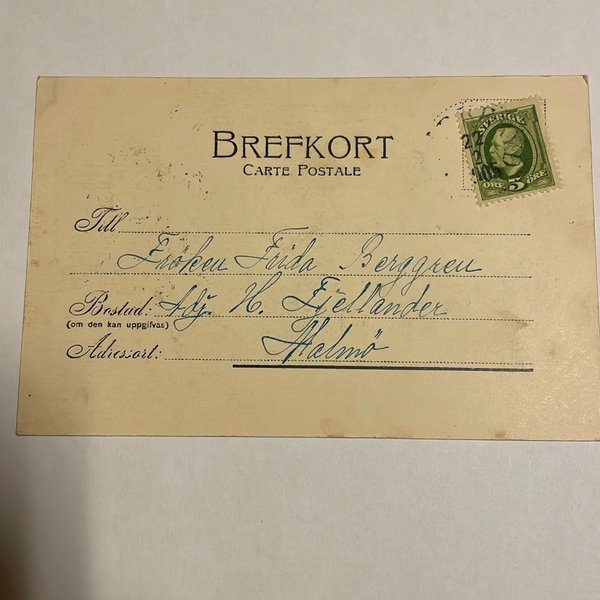 BREFKORT
CARTE POSTALE
SVERIGE
22
1905
ÖRE 5 ÖRE
Till
Fröken Frida Berggren
Bostad: Adj. H. Fjellander
(om den kan uppgifvas)
Adressort: Malmö